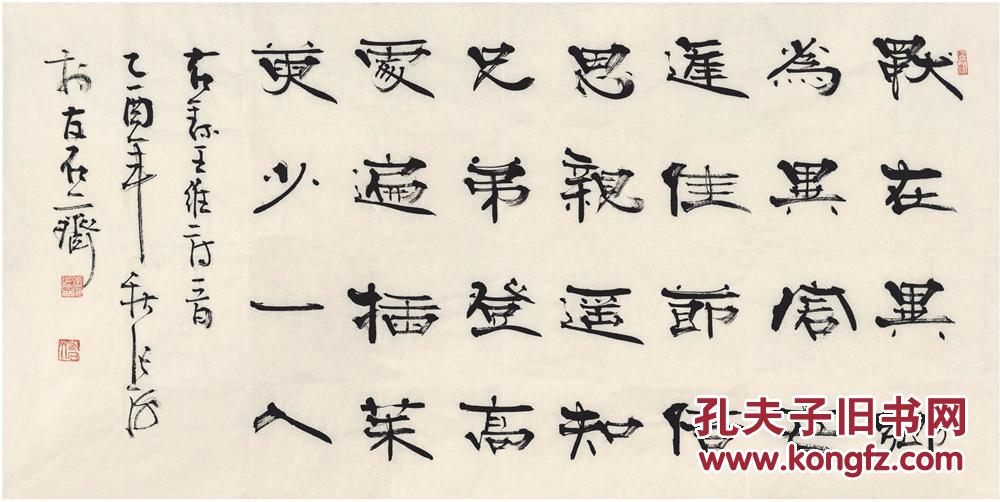 獨在異鄉
為異客每
逢佳節倍
思親遙知
兄弟登高
處遍插茱
萸少一人
右錄王維詩一首
乙酉年秋張海
於友石齋
孔夫子旧书网
www.kongfz.com